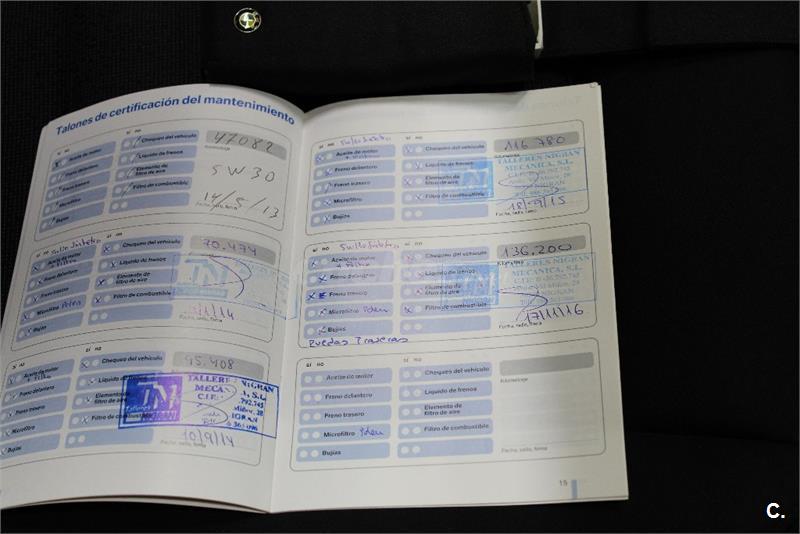 Talones de certificación del mantenimiento
SÍ NO
SÍ NO
Aceite de motor
Chequeo del vehículo
47082
Freno delantero
Líquido de frenos
Kilometraje
Freno trasero
Elemento de filtro de aire
5W30
Microfiltro
Filtro de combustible
14/5/13
Bujías
Fecha, sello, firma
SÍ NO
SÍ NO
Aceite de motor
Chequeo del vehículo
70.474
Freno delantero
Líquido de frenos
Freno trasero
Elemento de filtro de aire
TN
Microfiltro Polen
Filtro de combustible
Bujías
Fecha, sello, firma
SÍ NO
SÍ NO
Aceite de motor
Chequeo del vehículo
95.408
Freno delantero
Líquido de frenos
TN
TALLERES NIGRAN
Freno trasero
Elemento de filtro de aire
Microfiltro
Filtro de combustible
10/9/14
Bujías
Fecha, sello, firma
SÍ NO
SÍ NO
Aceite de motor
Chequeo del vehículo
116 780
Freno delantero
Líquido de frenos
TALLERES NIGRAN
MECANICA, S.L.
Freno trasero
Elemento de filtro de aire
Microfiltro
Filtro de combustible
18-9/15
Bujías
Fecha, sello, firma
SÍ NO
SÍ NO
Aceite de motor
Chequeo del vehículo
136.200
+ Filtro
Freno delantero
Líquido de frenos
TALLERES NIGRAN
MECANICA, S.L.
Freno trasero
Elemento de filtro de aire
Microfiltro Polen
Filtro de combustible
17/11/16
Bujías
Fecha, sello, firma
Ruedas Traseras
SÍ NO
SÍ NO
Aceite de motor
Chequeo del vehículo
Freno delantero
Líquido de frenos
Kilometraje
Freno trasero
Elemento de filtro de aire
Microfiltro Polen
Filtro de combustible
Bujías
Fecha, sello, firma
15
C.